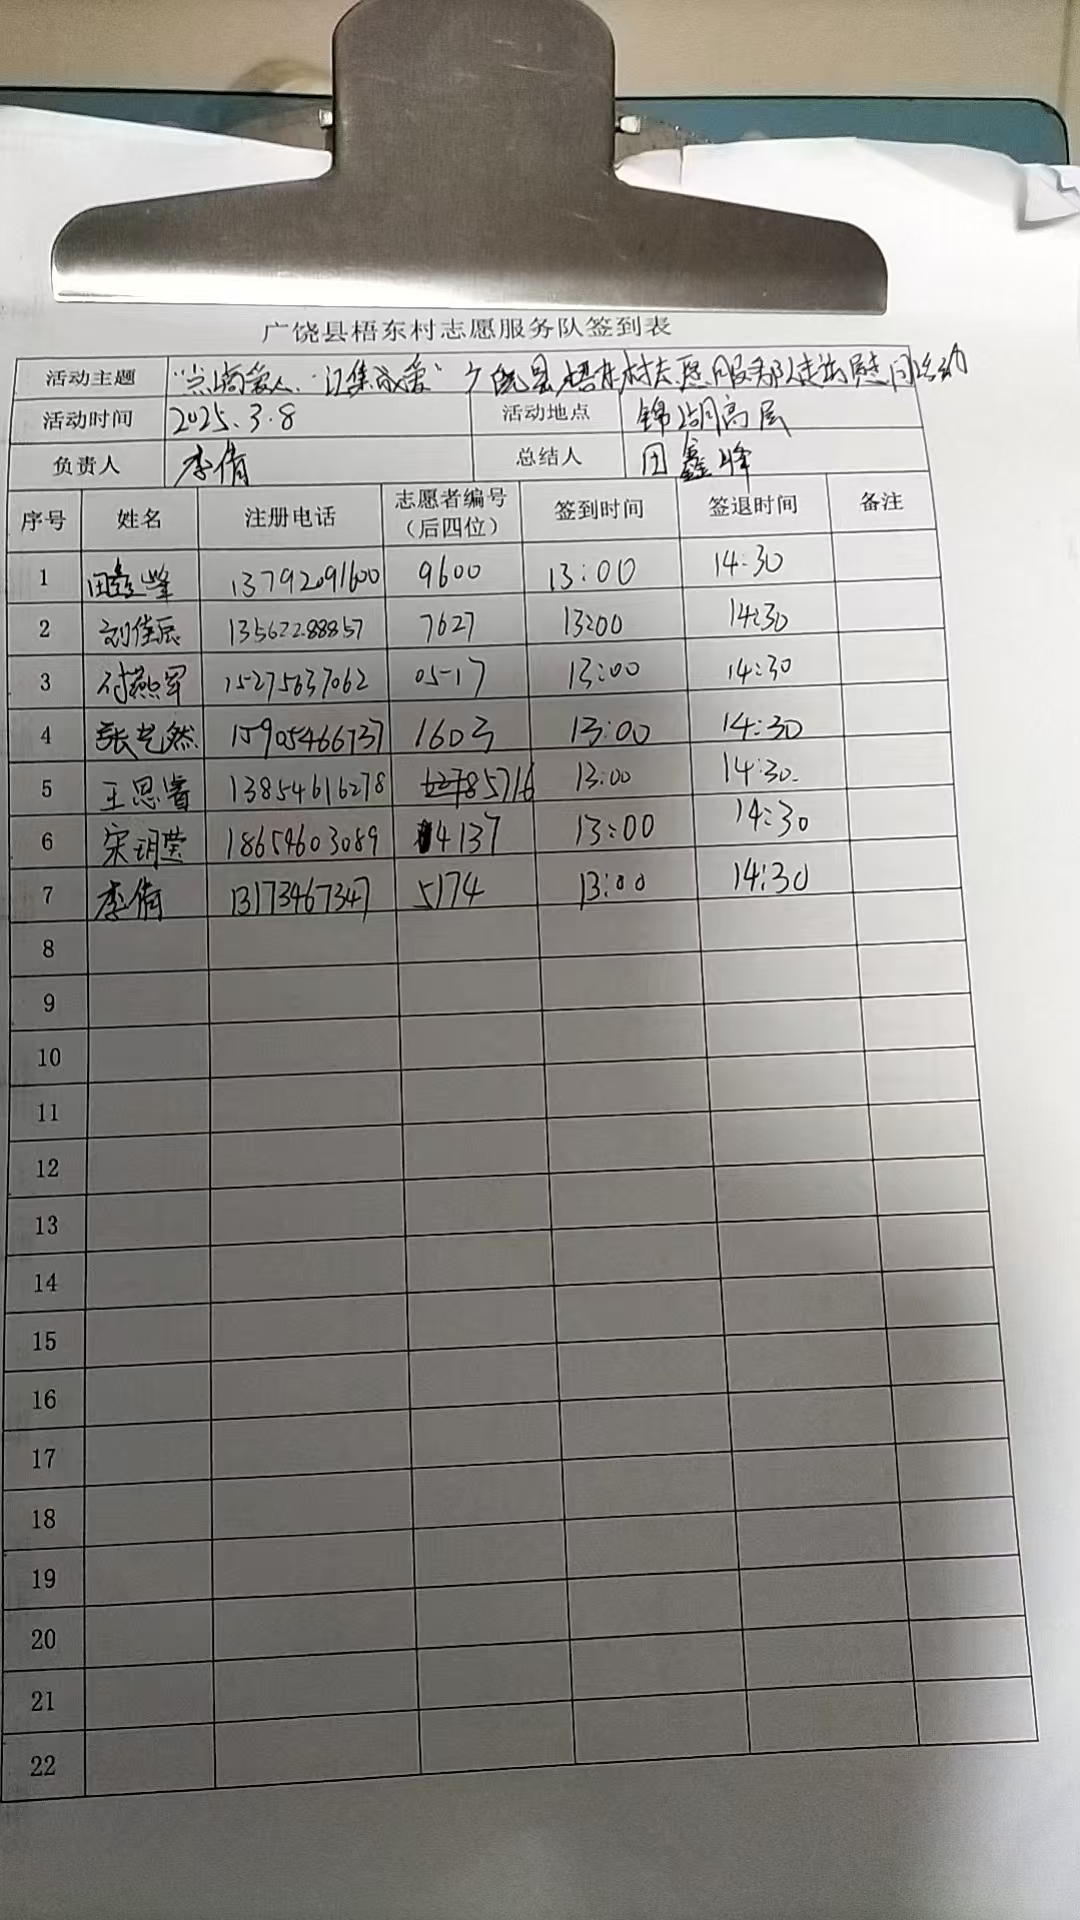 广饶县梧东村志愿服务队签到表
活动主题 "点滴爱人·汇集成爱"广饶县梧东村志愿服务队走出慰问活动
活动时间 2025.3.8 活动地点 锦湖高层
负责人 李倩 总结人 田鑫峰
序号 姓名 注册电话 志愿者编号（后四位） 签到时间 签退时间 备注
1 田鑫峰 13792091600 9600 13:00 14:30
2 刘佳辰 13562288857 7627 13:00 14:30
3 付燕军 15275637062 0517 13:00 14:30
4 张艺然 15905466737 1603 13:00 14:30
5 王思睿 13854616278 5716 13:00 14:30
6 宋玥莹 18654603089 4137 13:00 14:30
7 李倩 13173467347 5174 13:00 14:30
8
9
10
11
12
13
14
15
16
17
18
19
20
21
22